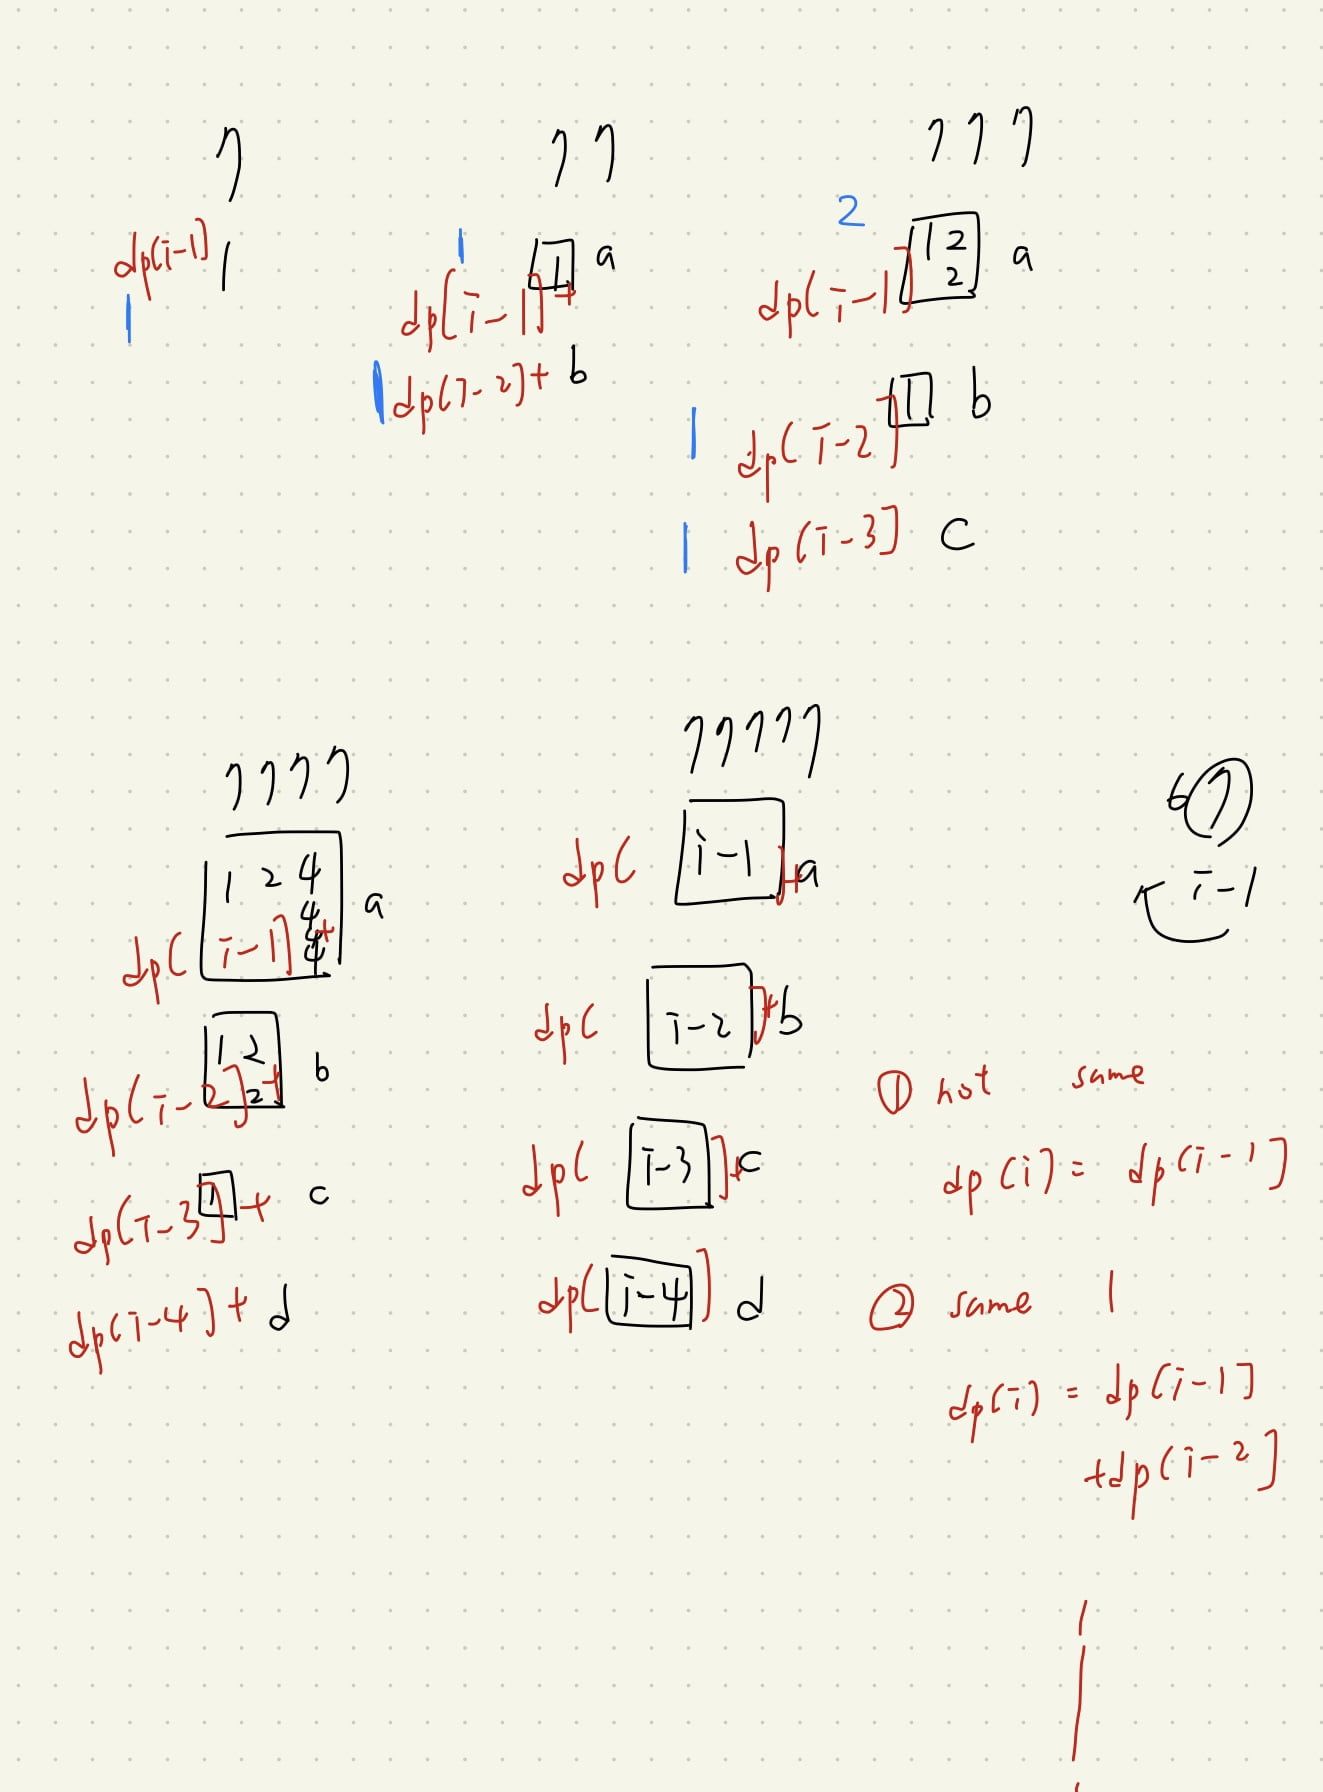 7
dp[i-1] 1
1
7 7
1 1 a
dp[i-1]+
1 dp[i-2]+ b
7 7 7
2 1 2 a
2
dp[i-1]
1 1 b
dp[i-2]
1 dp[i-3] c
7 7 7 7
1 2 4 a
4
dp[i-1] 4+
1 2 b
dp[i-2] 2+
1 c
dp[i-3]+
dp[i-4]+ d
7 7 7 7 7
dp[i-1]+a
dp[i-2]+b
dp[i-3]+c
dp[i-4] d
6 7
i-1
① not same
dp[i] = dp[i-1]
② same 1
dp[i] = dp[i-1]
+dp[i-2]